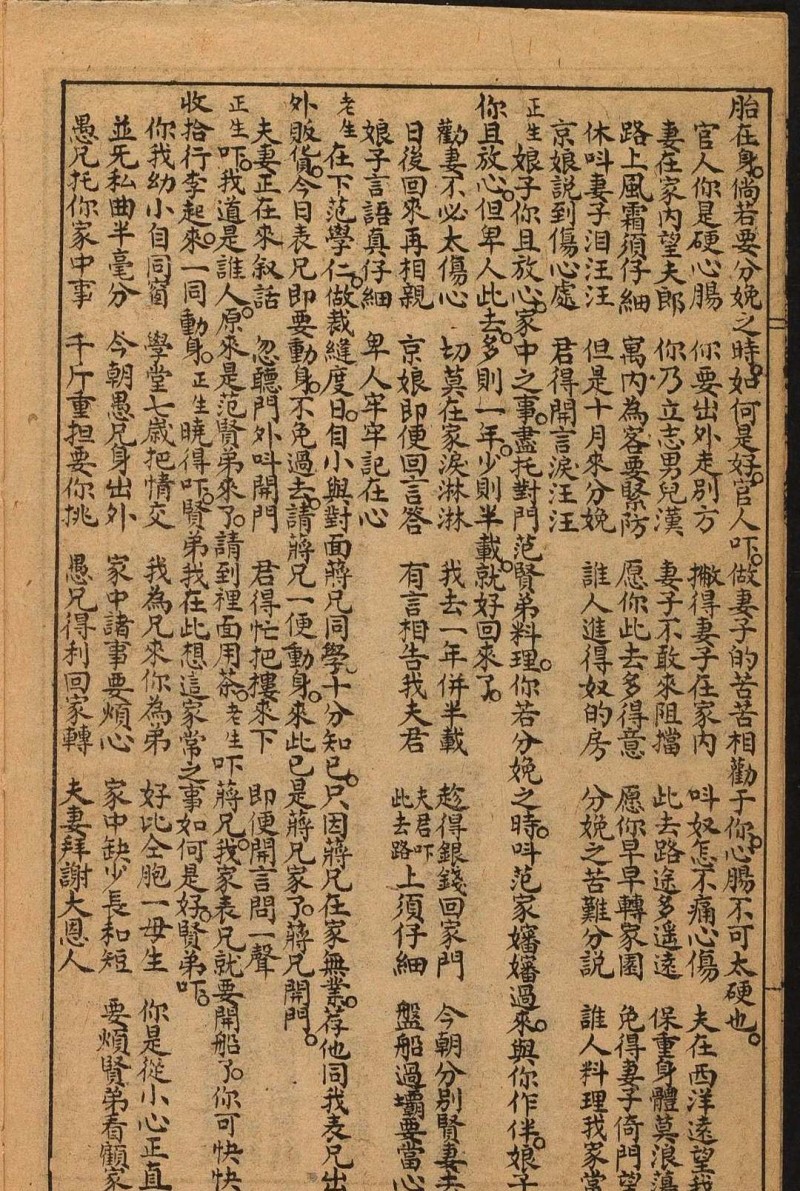 胎在身。倘若要分娩之時。如何是好。官人吓。做妻子的苦苦相勸于你。心腸不可太硬也。
官人你是硬心腸　你要出外走別方　撇得妻子在家內　叫奴怎不痛心傷　夫在西洋遠望我
妻在家內望夫郎　你乃立志男兒漢　妻子不敢來阻擋　此去路途多遙遠　保重身體莫浪蕩
路上風霜須仔細　寓內為客要緊防　愿你此去多得意　愿你早早轉家園　免得妻子倚門望
休叫妻子泪汪汪　但是十月來分娩　誰人進得奴的房　分娩之苦難分説　誰人料理我家常
京娘説到傷心處　君得開言淚汪汪
正生 娘子你且放心。家中之事。盡托對門范賢弟料理。你若分娩之時。叫范家嬸嬸過來。與你作伴。娘子
你且放心。但卑人此去。多則一年。少則半載。就好回來了。
勸妻不必太傷心　切莫在家淚淋淋　我去一年併半載　趁得銀錢回家門　今朝分別賢妻去
日後回來再相親　京娘即便回言答　有言相告我夫君　夫君吓此去路上須仔細　盤船過壩要當心
娘子言語真仔細　卑人牢牢記在心
老生 在下范學仁。做裁縫度日。自小與對面蔣兄同學。十分知已。只因蔣兄在家無業。荐他同我表兄出
外販貨。今日表兄即要動身。不免過去。請蔣兄一便動身。來此已是蔣兄家了。蔣兄開門。
夫妻正在來叙話　忽聽門外叫開門　君得忙把樓來下　即便開言問一聲
正生 吓。我道是誰人。原來是范賢弟來了。請到裡面用茶。老生 吓蔣兄。我家表兄就要開船了。你可快快
收拾行李起來。一同動身。正生 曉得吓。賢弟我在此想這家常之事如何是好。賢弟吓。
你我幼小自同窗　學堂七歲把情交　我為兄來你為弟　好比仝胞一母生　你是從小心正直
並死私曲半毫分　今朝愚兄身出外　家中諸事要煩心　家中缺少長和短　要煩賢弟看顧家
愚兄托你家中事　千斤重担要你挑　愚兄得利回家轉　夫妻拜謝大恩人